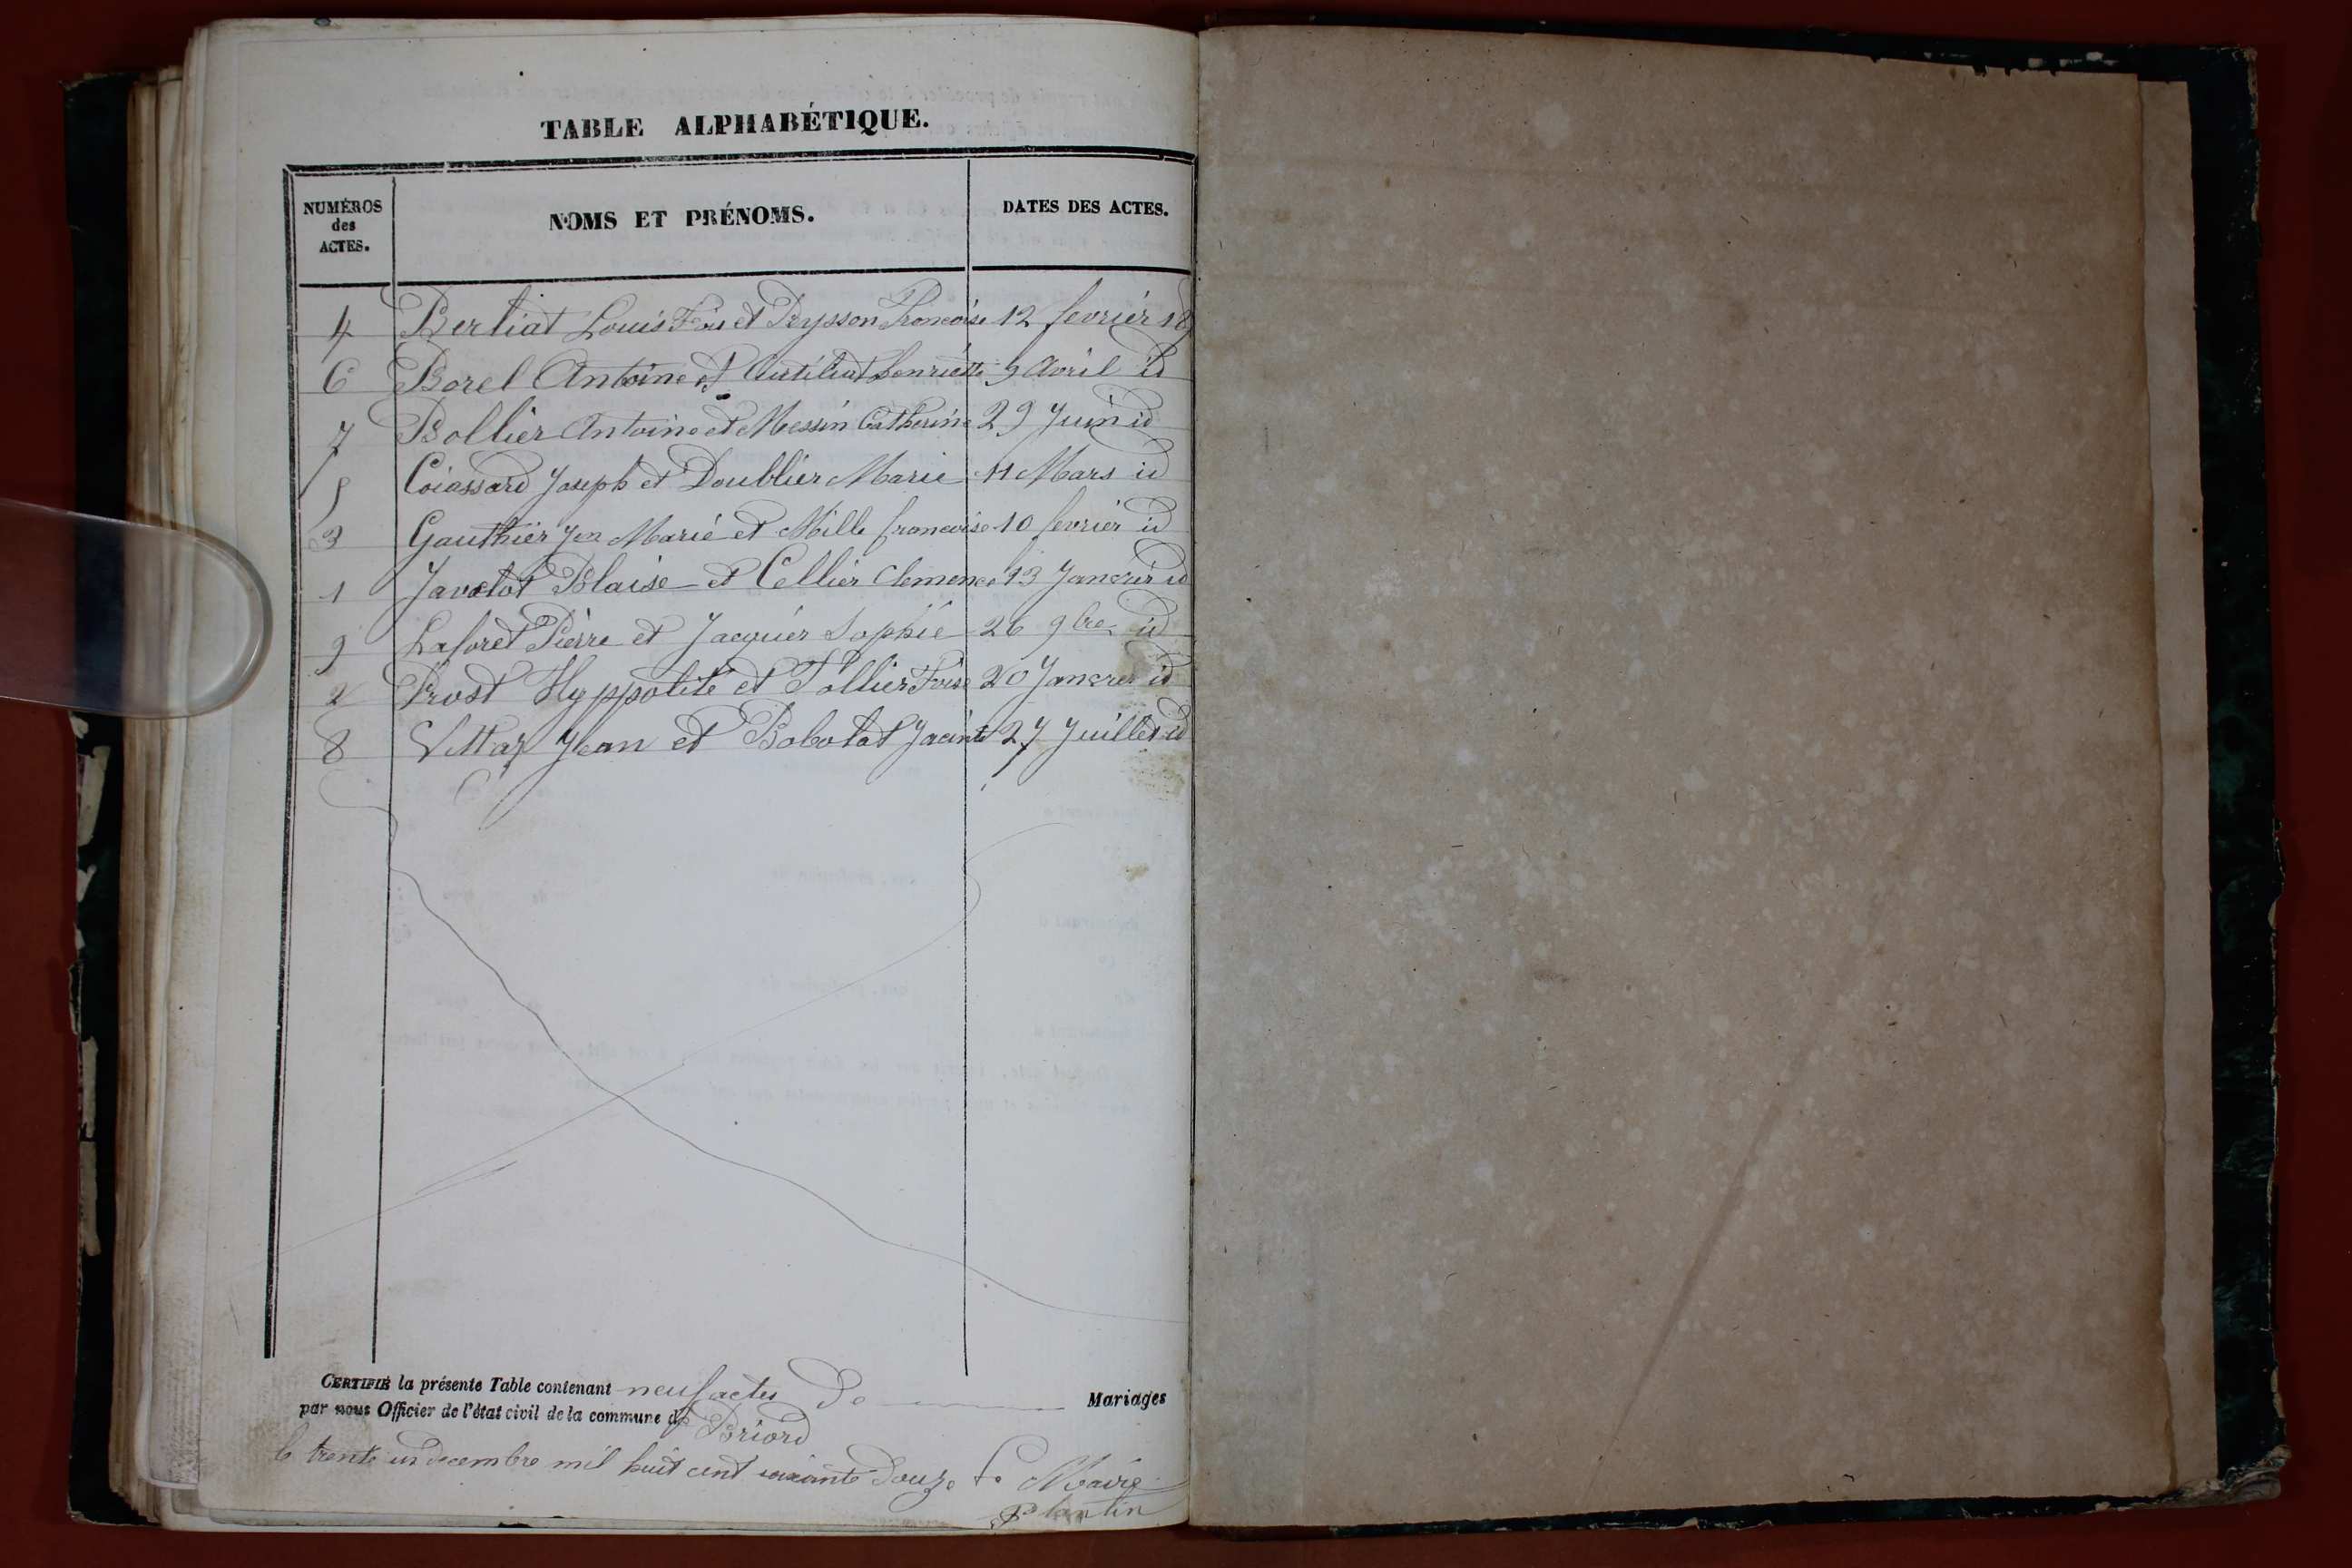 TABLE ALPHABÉTIQUE.
NUMÉROS des ACTES. NOMS ET PRÉNOMS. DATES DES ACTES.
4 Berliat Louis Fois et Françoise 12 fevrier 18
6 Borel Antoine et henriette 9 Avril id
7 Bollier Antoine et Messin Catherine 29 Juin id
5 Coiassard Joseph et Doublier Marie 11 Mars id
3 Gauthier Jen Marie et Mille francoise 10 fevrier id
1 Javelot Blaise et Cellier Clemence 13 Janvier id
9 Laforet Pierre et Jacquier Sophie 26 9bre id
2 Prost Hyppolite et Tollier Foise 20 Janvier id
8 Vettar Jean et Bobolat Jacinte 27 Juillet id
CERTIFIÉ la présente Table contenant neuf actes De Mariages
par nous Officier de l'état civil de la commune de Briord
le trente un decembre mil huit cent soixante Douze Le Maire
Plantin